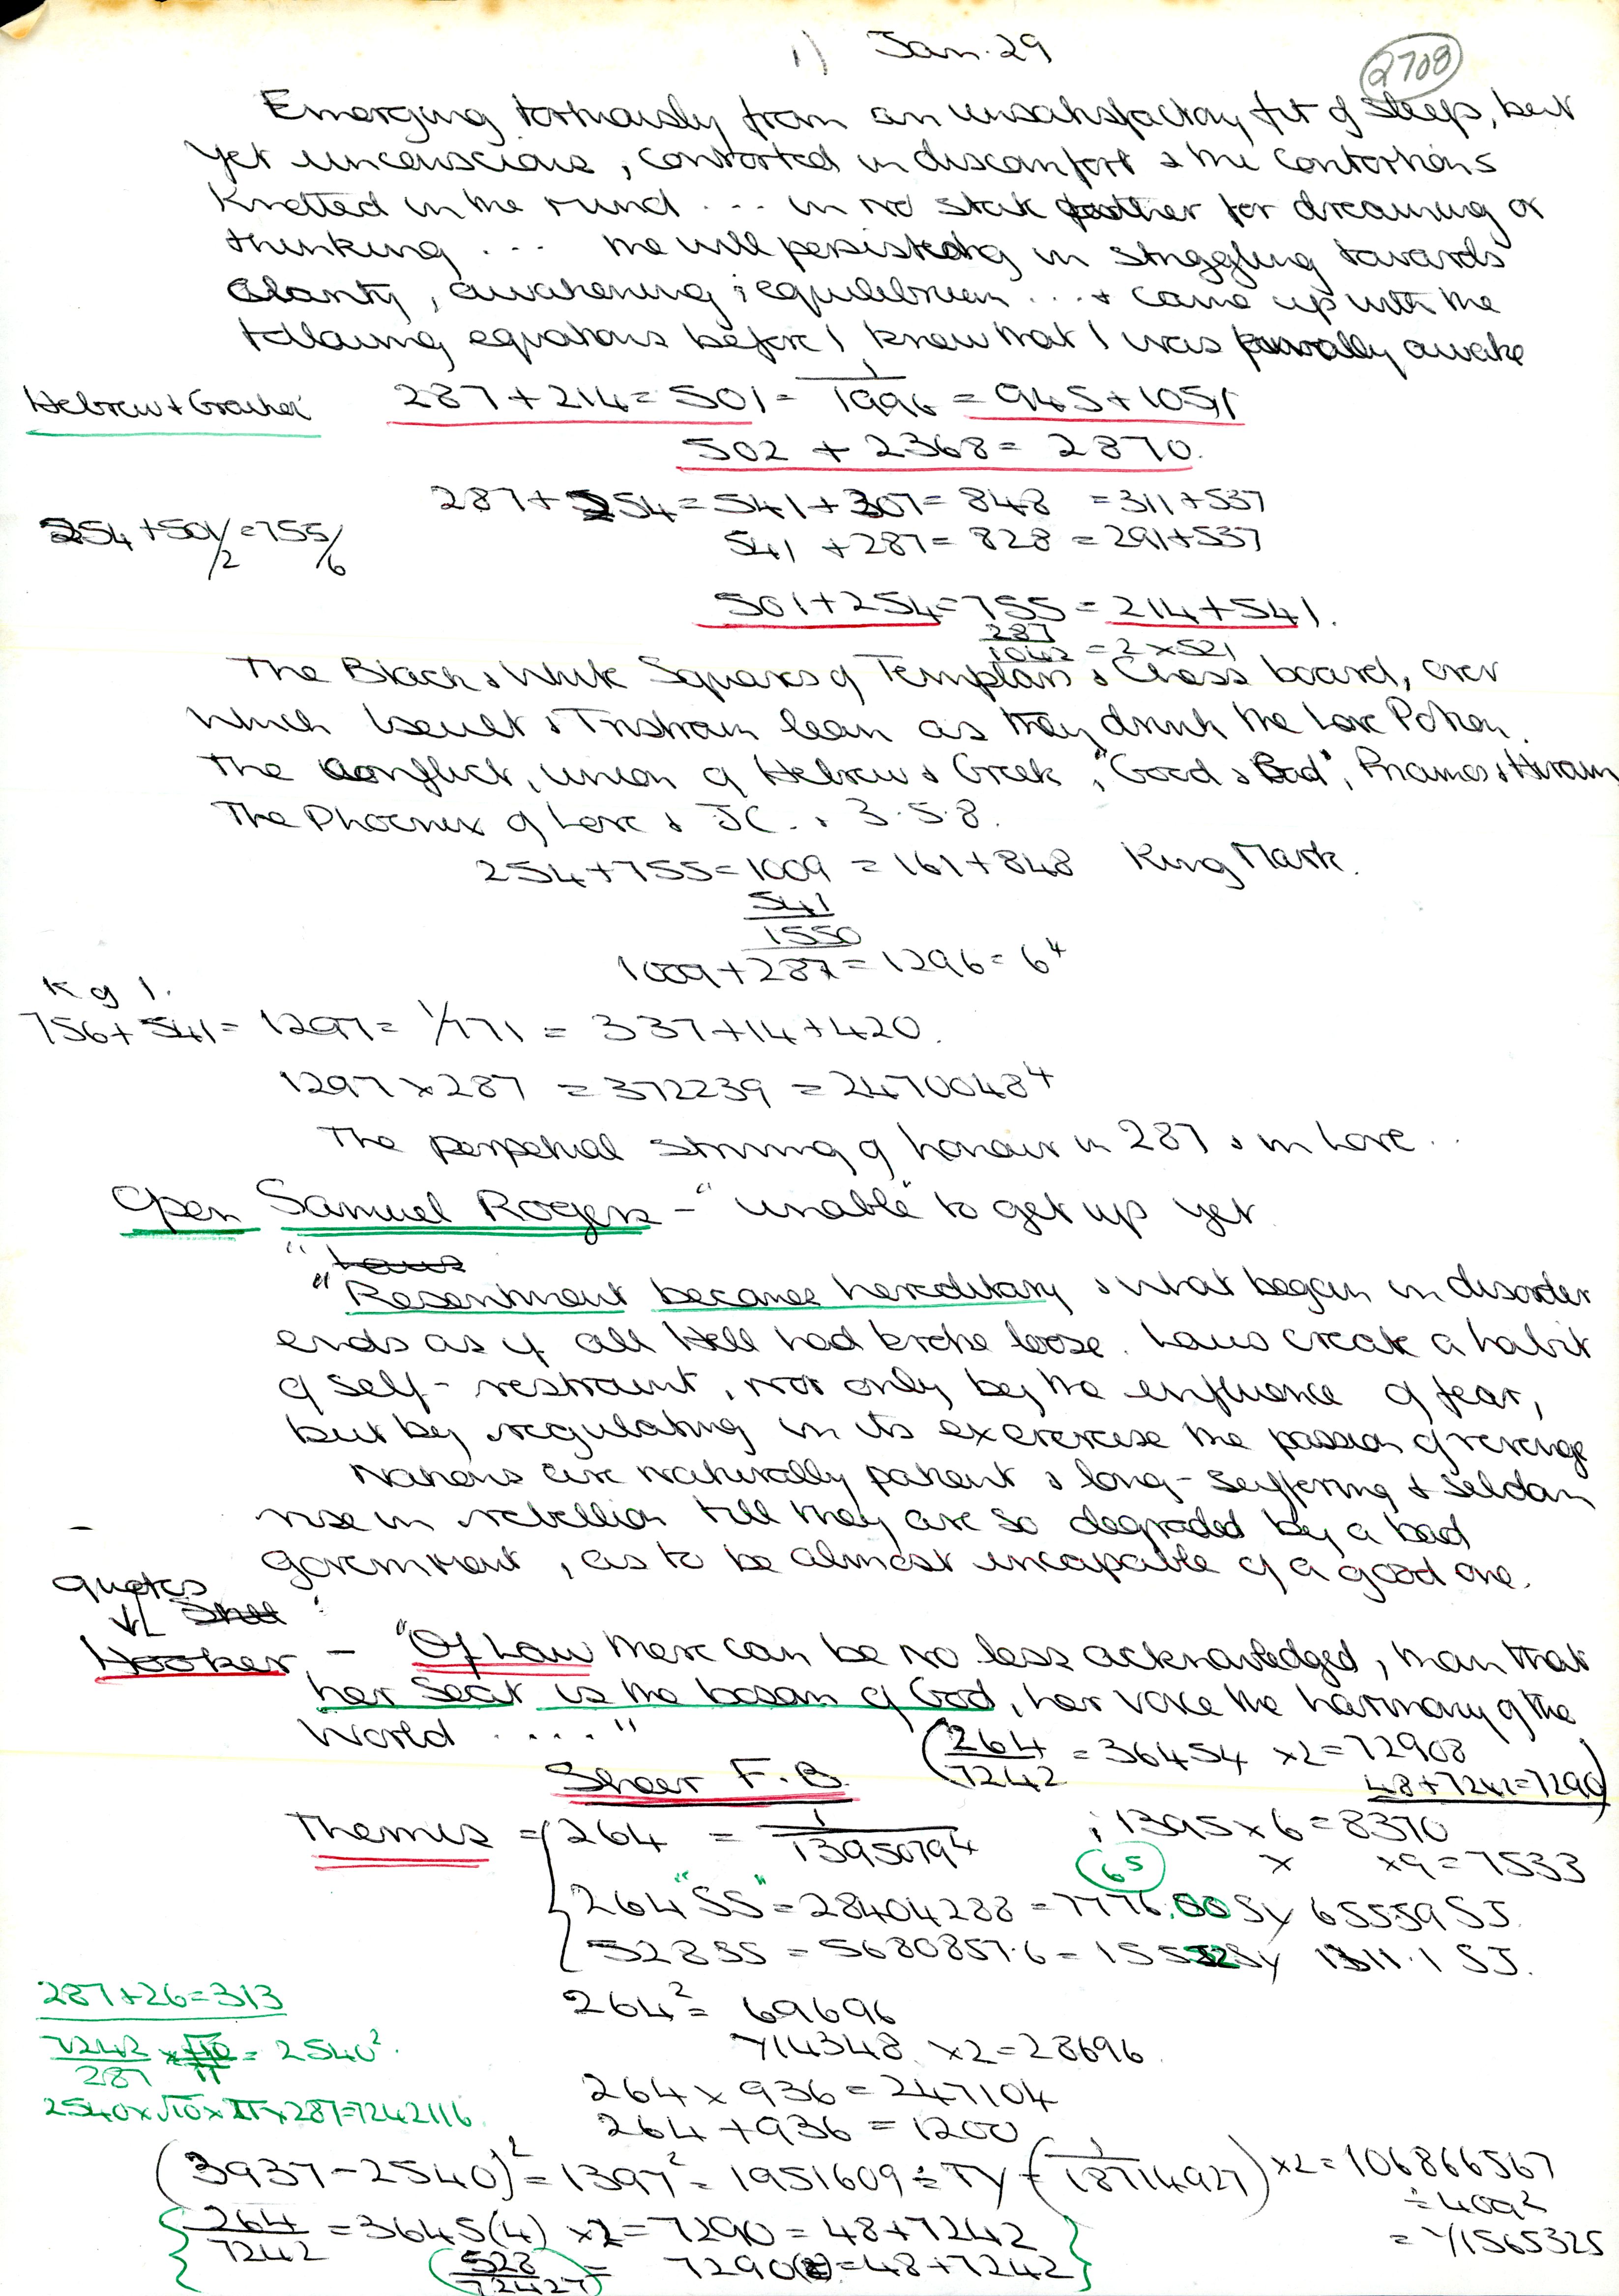 1) Jan. 29
2708
Emerging tortuously from an unsatisfactory fit of sleep, but
yet unconscious, contorted in discomfort & the contortions
knotted in the mind ... in no state either for dreaming or
thinking ... the will persisting in struggling towards
clarity, awakening; equilibrium ... & came up with the
following equations before I knew that I was awake
Hebrew & Greek 287 + 214 = 501 = 1/1996 = 945 + 1051
502 + 2368 = 2870.
287 + 254 = 541 + 307 = 848 = 311 + 537
254 + 501/2 = 755/6
541 + 287 = 828 = 291 + 537
501 + 254 = 755 = 214 + 541.
287
1042 = 2 x 521
The Black & White Squares of Templars & Chess board, over
which Iseult & Tristram lean as they drink the Love Potion.
The conflict, union of Hebrew & Greek, "Good & Bad", Priamus & Hiram
The Phoenix of Love & JC. & 3.5.8.
254 + 755 = 1009 = 161 + 848 King Mark.
541
1550
1009 + 287 = 1296 = 6⁴
K of 1.
756 + 541 = 1297 = 1/771 = 337 + 14 + 420.
1297 x 287 = 372239 = 2470048⁴
The perpetual striving of honour in 287 & in Love ..
Open Samuel Rogers - "unable" to get up yet
" Laws
"Resentment becomes hereditary & what began in disorder
ends as if all Hell had broke loose. Laws create a habit
of self-restraint, not only by the influence of fear,
but by regulating in its exercise the passion of revenge
Nations are naturally patient & long-suffering & seldom
rise in rebellion till they are so degraded by a bad
government, as to be almost incapable of a good one.
quotes
Hooker - "Of Law there can be no less acknowledged, than that
her Seat is the bosom of God, her voice the harmony of the
World ...."
(264/7242 = 36454 x2 = 72908
48 + 7242 = 7290)
Sheer F.B.
Themis = 264 = 1/13950794 ; 1395 x 6 = 8370
x x9 = 7533
(6⁵)
264 "SS" = 28404288 = 7776.00 SY 65559 SJ.
528 SS = 5680857.6 = 15552 SY 1311.1 SJ.
287 + 26 = 313
264² = 69696
7242/287 = 2540².
Y14348 x2 = 28696.
264 x 936 = 247104
2540 x √10 x π x 287 = 7242116
264 + 936 = 1200
(3937 - 2540)² = 1397² = 1951609 ÷ TY = (1/18714927) x2 = 106866567
÷ 409²
= Y1565325
264/7242 = 3645(4) x2 = 7290 = 48 + 7242
528/72427 = 7290(8) = 48 + 7242